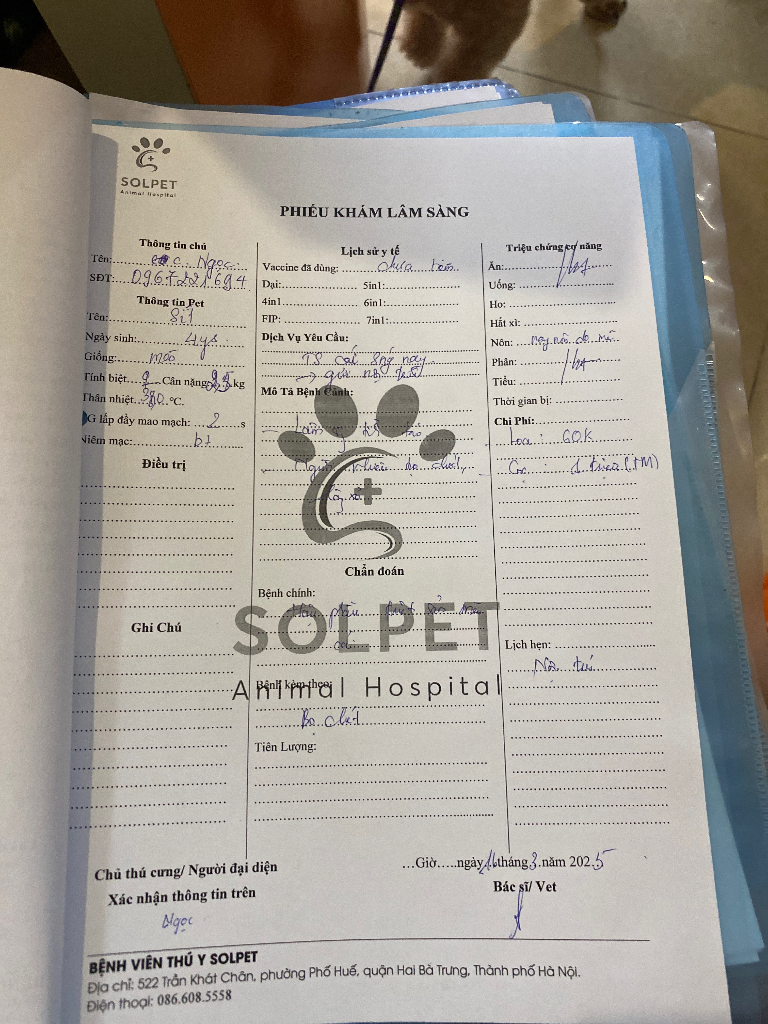 SOLPET
Animal Hospital
PHIẾU KHÁM LÂM SÀNG
Thông tin chủ
Tên: c. Ngọc
SĐT: 0967221694
Thông tin Pet
Tên:
Ngày sinh: 4ys
Giống: mèo
Tính biệt Cân nặng: kg
Thân nhiệt: 380 °C.
G lấp đầy mao mạch: 2 s
Niêm mạc: bt
Điều trị
Ghi Chú
Lịch sử y tế
Vaccine đã dùng: chưa tiêm
Dại: 5in1:
4in1 6in1:
FIP: 7in1:
Dịch Vụ Yêu Cầu:
TS
Mô Tả Bệnh Cảnh:
Chẩn đoán
Bệnh chính:
SOLPET
Animal Hospital
Bệnh kèm theo:
Bọ chét
Tiên Lượng:
Triệu chứng cơ năng
Ăn: /bt
Uống:
Ho:
Hắt xì:
Nôn:
Phân: /bt
Tiểu:
Thời gian bị:
Chi Phí:
Loa: 60K
Cọc: 1 triệu (TM)
Lịch hẹn:
Nội trú
Chủ thú cưng/ Người đại diện
Xác nhận thông tin trên
Ngọc
...Giờ.....ngày 16 tháng 3 năm 2025
Bác sĩ/ Vet
BỆNH VIÊN THÚ Y SOLPET
Địa chỉ: 522 Trần Khát Chân, phường Phố Huế, quận Hai Bà Trưng, Thành phố Hà Nội.
Điện thoại: 086.608.5558